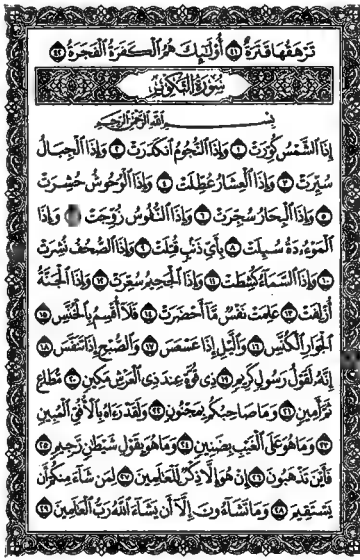 تَرْهَقُهَا قَتَرَةٌ ٤١ أُوْلَٰٓئِكَ هُمُ ٱلْكَفَرَةُ ٱلْفَجَرَةُ ٤٢
سُورَةُ التَّكْوِيرِ
بِسْمِ ٱللَّهِ ٱلرَّحْمَٰنِ ٱلرَّحِيمِ
إِذَا ٱلشَّمْسُ كُوِّرَتْ ١ وَإِذَا ٱلنُّجُومُ ٱنكَدَرَتْ ٢ وَإِذَا ٱلْجِبَالُ
سُيِّرَتْ ٣ وَإِذَا ٱلْعِشَارُ عُطِّلَتْ ٤ وَإِذَا ٱلْوُحُوشُ حُشِرَتْ
٥ وَإِذَا ٱلْبِحَارُ سُجِّرَتْ ٦ وَإِذَا ٱلنُّفُوسُ زُوِّجَتْ وَإِذَا
ٱلْمَوْءُۥدَةُ سُئِلَتْ ٨ بِأَيِّ ذَنۢبٍ قُتِلَتْ ٩ وَإِذَا ٱلصُّحُفُ نُشِرَتْ
١٠ وَإِذَا ٱلسَّمَآءُ كُشِطَتْ ١١ وَإِذَا ٱلْجَحِيمُ سُعِّرَتْ ١٢ وَإِذَا ٱلْجَنَّةُ
أُزْلِفَتْ ١٣ عَلِمَتْ نَفْسٌ مَّآ أَحْضَرَتْ ١٤ فَلَآ أُقْسِمُ بِٱلْخُنَّسِ ١٥
ٱلْجَوَارِ ٱلْكُنَّسِ ١٦ وَٱلَّيْلِ إِذَا عَسْعَسَ ١٧ وَٱلصُّبْحِ إِذَا تَنَفَّسَ ١٨
إِنَّهُۥ لَقَوْلُ رَسُولٍ كَرِيمٍ ١٩ ذِى قُوَّةٍ عِندَ ذِى ٱلْعَرْشِ مَكِينٍ ٢٠ مُّطَاعٍ
ثَمَّ أَمِينٍ ٢١ وَمَا صَاحِبُكُم بِمَجْنُونٍ ٢٢ وَلَقَدْ رَءَاهُ بِٱلْأُفُقِ ٱلْمُبِينِ
٢٣ وَمَا هُوَ عَلَى ٱلْغَيْبِ بِضَنِينٍ ٢٤ وَمَا هُوَ بِقَوْلِ شَيْطَٰنٍ رَّجِيمٍ ٢٥
فَأَيْنَ تَذْهَبُونَ ٢٦ إِنْ هُوَ إِلَّا ذِكْرٌ لِّلْعَٰلَمِينَ ٢٧ لِمَن شَآءَ مِنكُمْ أَن
يَسْتَقِيمَ ٢٨ وَمَا تَشَآءُونَ إِلَّآ أَن يَشَآءَ ٱللَّهُ رَبُّ ٱلْعَٰلَمِينَ ٢٩